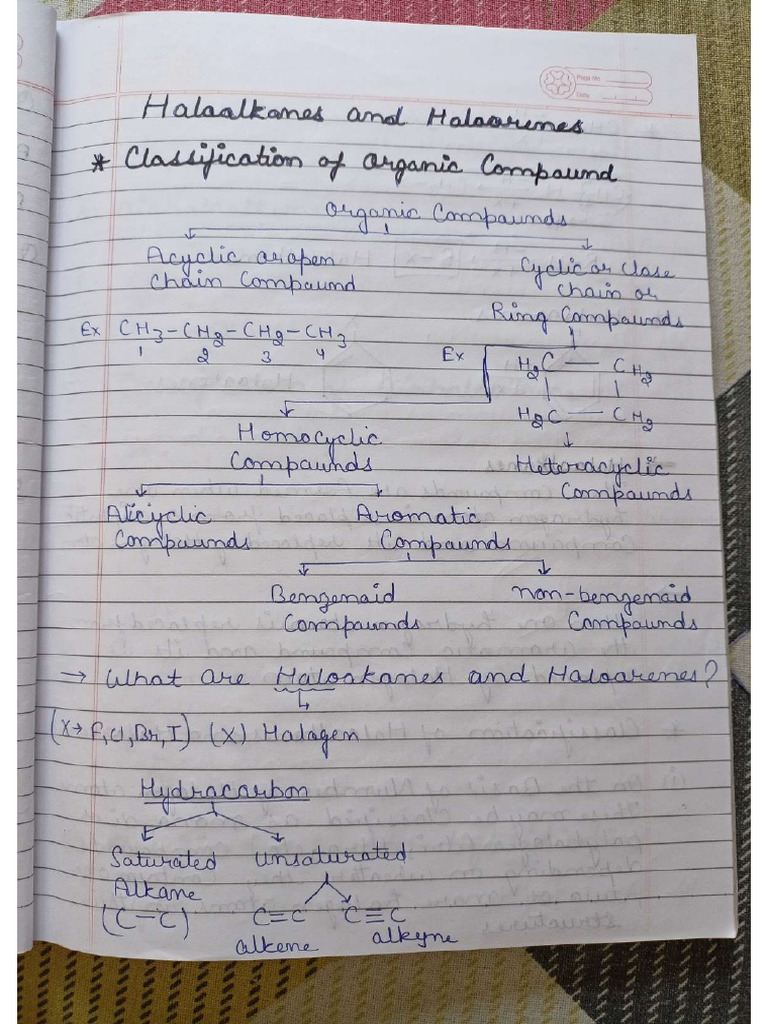 Page No.
Date
Haloalkanes and Haloarenes
* Classification of Organic Compound
Organic Compounds
Acyclic or open
chain Compound
Cyclic or close
chain or
Ring Compounds
Ex CH3-CH2-CH2-CH3
1 2 3 4
Ex
H2C — CH2
H2C — CH2
Homocyclic
Compounds
Heterocyclic
Compounds
Alicyclic
Compounds
Aromatic
Compounds
Benzenoid
Compounds
non-benzenoid
Compounds
→ What are Haloakanes and Haloarenes?
(X→ F, Cl, Br, I) (X) Halogen
Hydrocarbon
Saturated
Alkane
(C—C)
Unsaturated
C=C
alkene
C≡C
alkyne